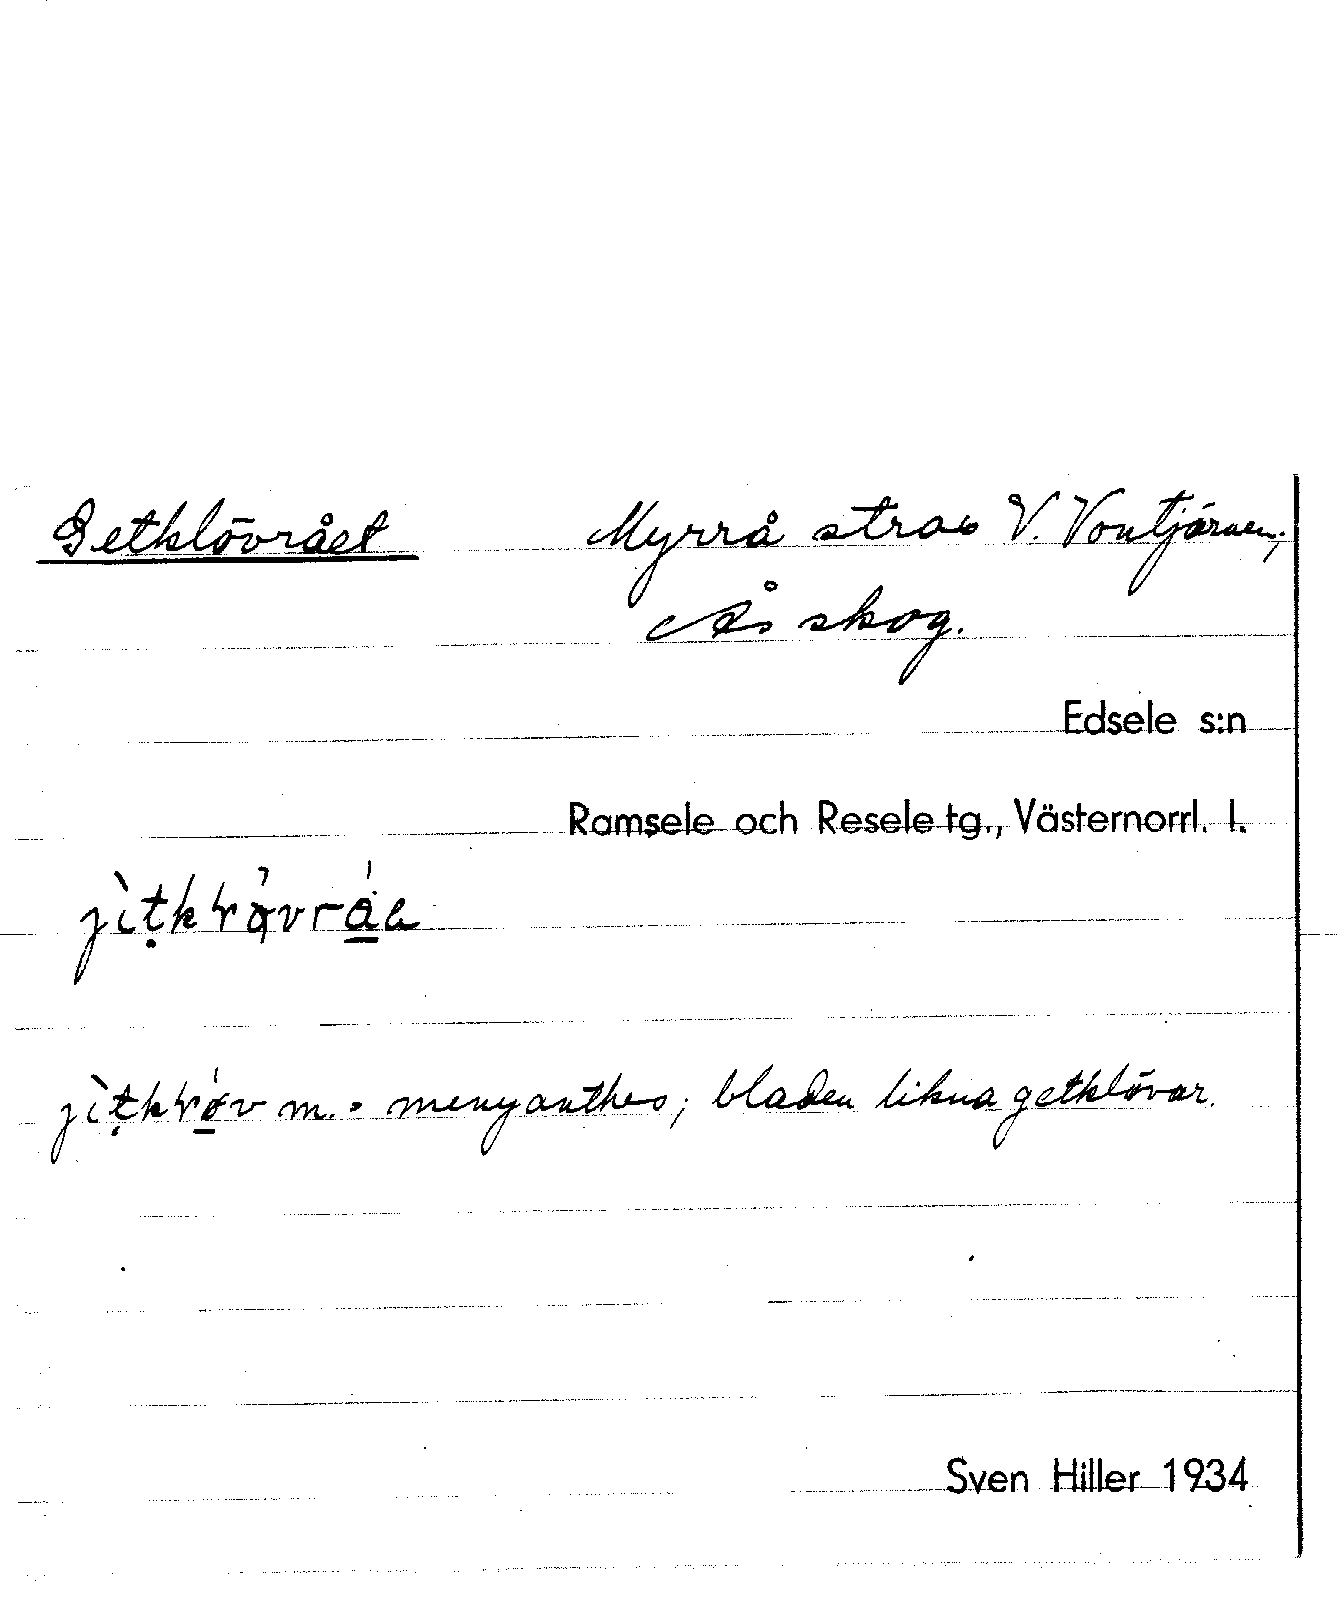 Getklövrået Myrrå strax V. Vontjärnen,
Ås skog.
Edsele s:n
Ramsele och Resele tg., Västernorrl. l.
m. = menyanthes; bladen likna getklövar.
Sven Hiller 1934